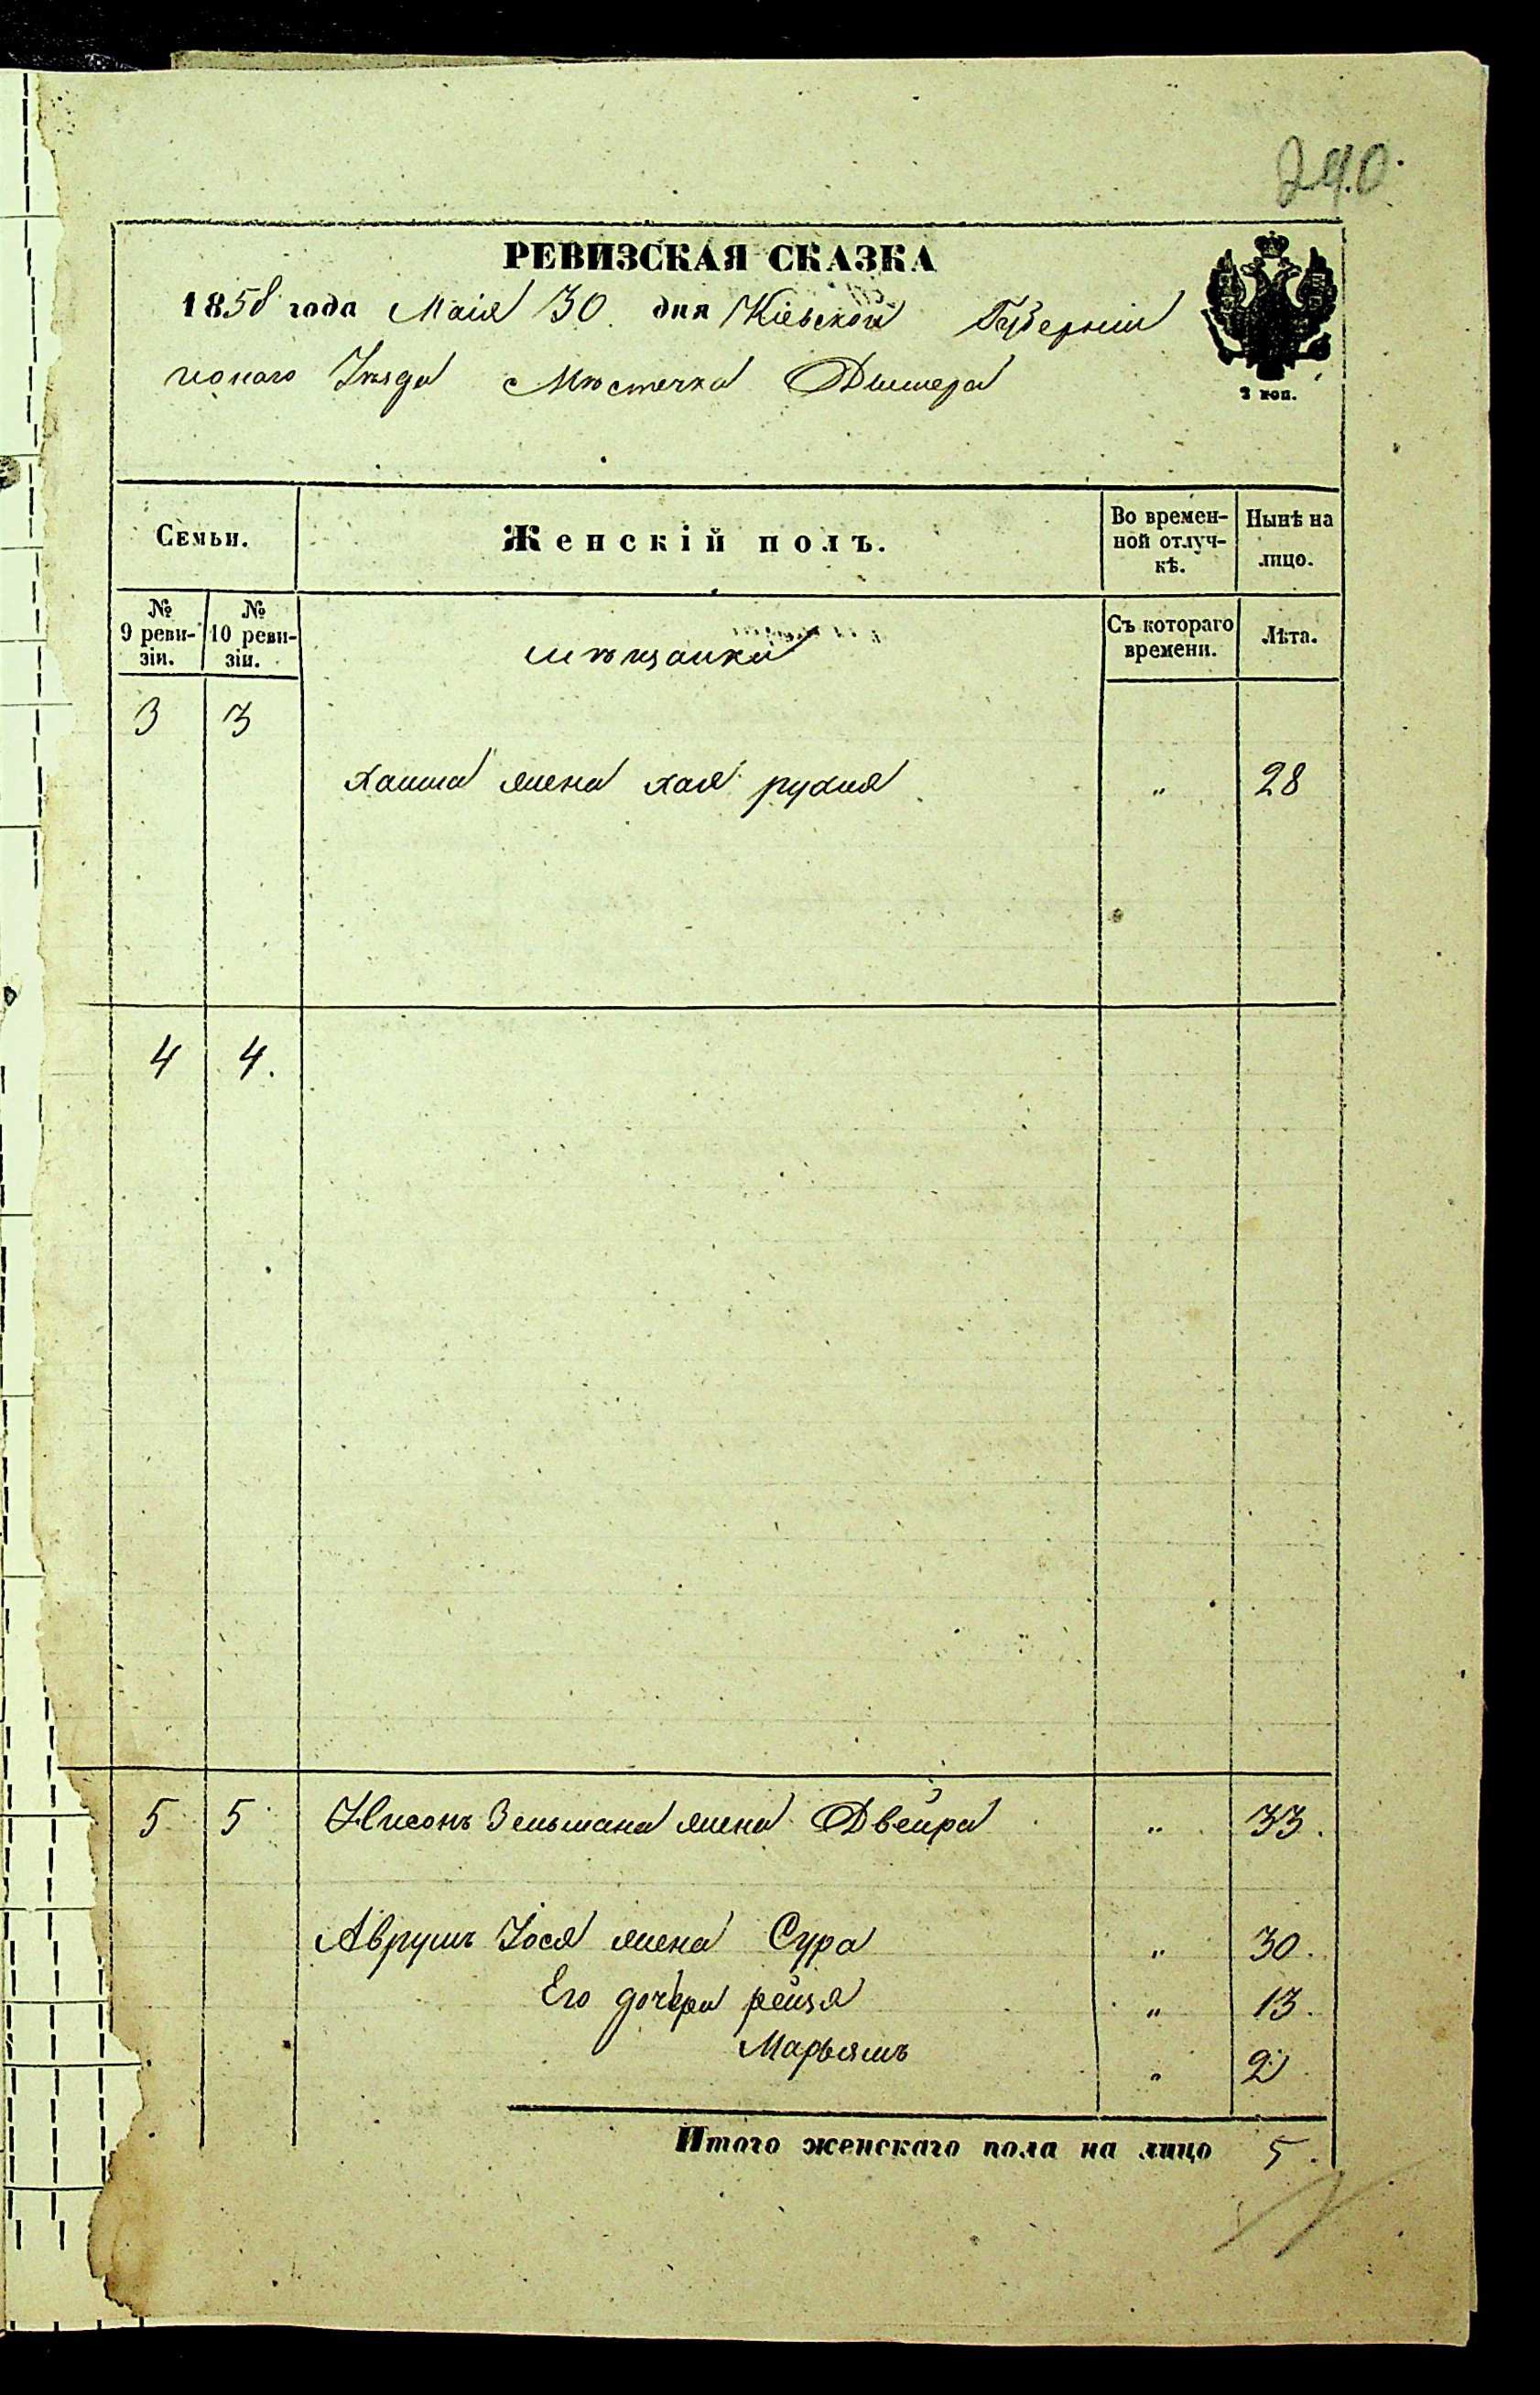 240.
РЕВИЗСКАЯ СКАЗКА
1858 года Маія 30. дня Кіевской Губерніи
наго Уѣзда Мѣстечка Дымера
2 коп.
Семьи.
Женскій полъ.
Во времен-
ной отлуч-
кѣ.
Нынѣ на
лицо.
№
9 реви-
зіи.
№
10 реви-
зіи.
мѣщанки
Съ котораго
времени.
Лѣта.
3 3
жена хая рухля " 28
4 4.
5 5 Нисонъ Зельмана жена Двейра " 33.
Аврумъ Іося жена Сура " 30.
Его дочери рейзя " 13.
Марьямъ " 2
Итого женскаго пола на лицо 5.